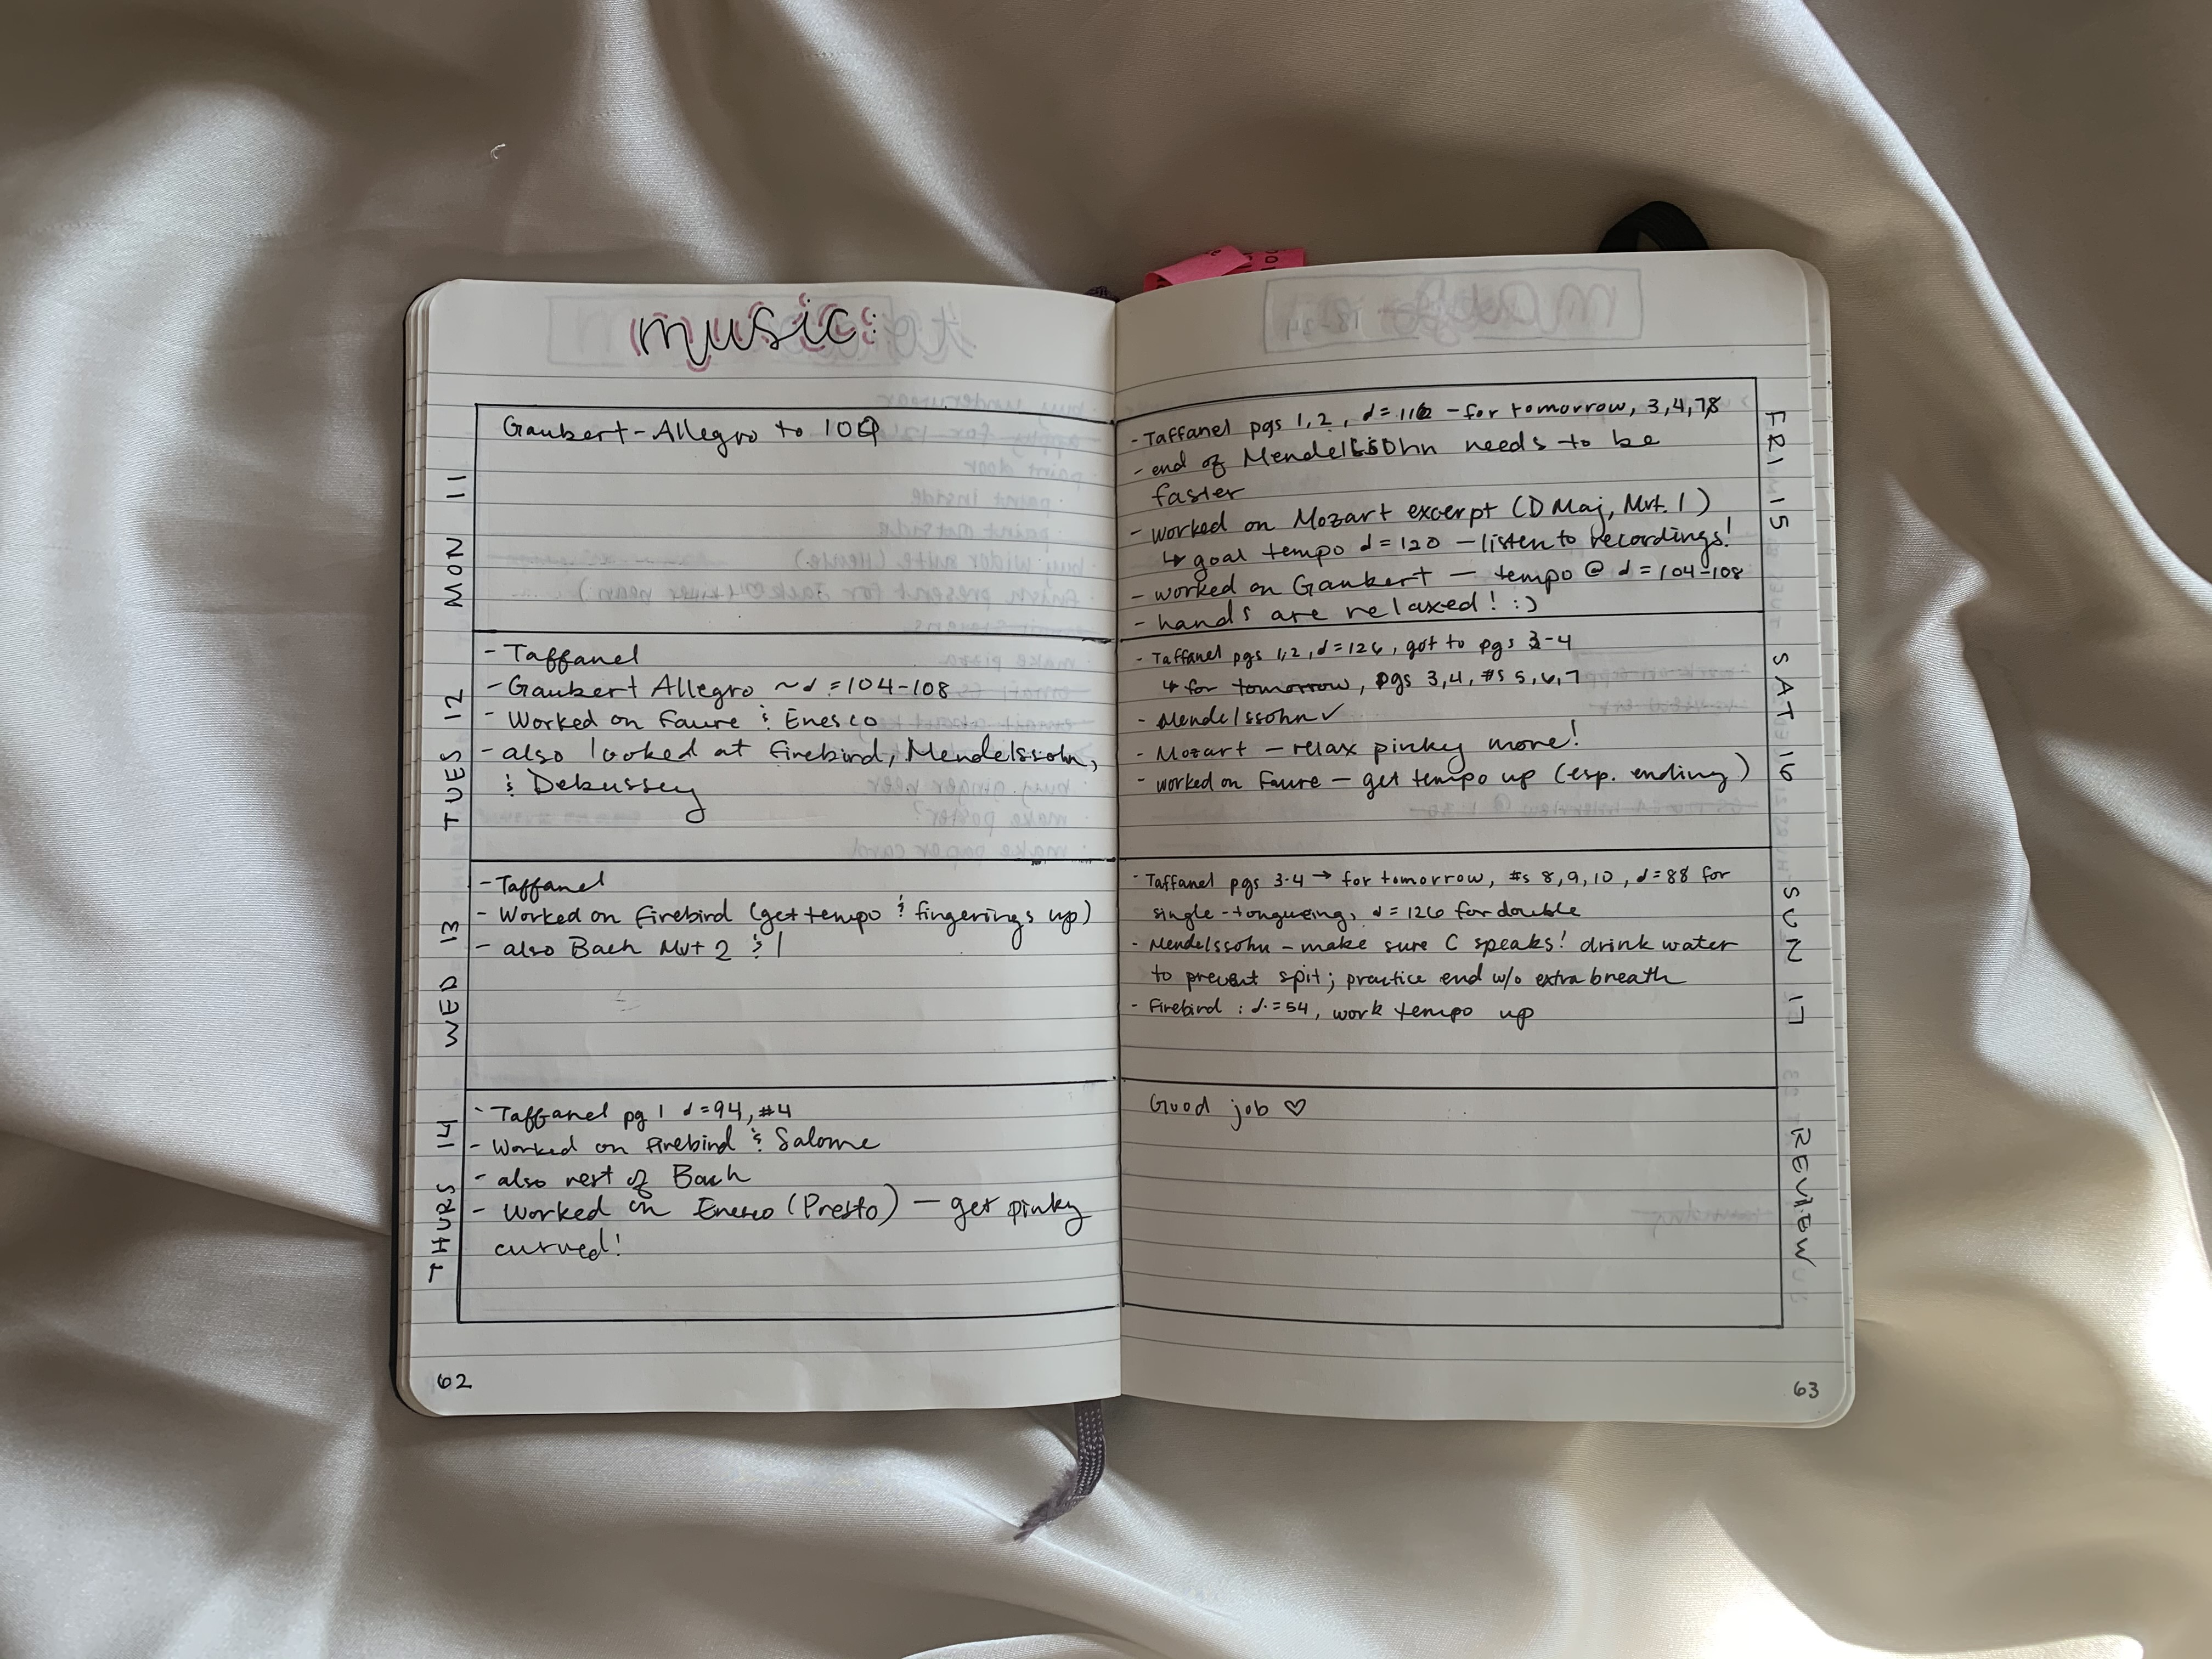 music:
MON 11
Gaubert-Allegro to 100
TUES 12
- Taffanel
- Gaubert Allegro ~ d = 104-108
- Worked on Faure & Enesco
- also looked at Firebird, Mendelssohn,
& Debussey
WED 13
- Taffanel
- Worked on Firebird (get tempo & fingerings up)
- also Bach Mvt 2 & 1
THURS 14
- Taffanel pg 1 d=94, #4
- Worked on Firebird & Salome
- also rest of Bach
- Worked on Enesco (Presto) — get pinky
curved!
62
FRI 15
- Taffanel pgs 1,2, d= - for tomorrow, 3,4,
- end of Mendelssohn needs to be
faster
- worked on Mozart excerpt (D Maj, Mvt. 1)
↳ goal tempo d=120 - listen to recordings!
- worked on Gaubert — tempo @ d=104-108
- hands are relaxed! :)
SAT 16
- Taffanel pgs 1,2, d=126, got to pgs 3-4
↳ for tomorrow, pgs 3,4, #s 5,6,7
- Mendelssohn ✓
- Mozart - relax pinky more!
- worked on Faure - get tempo up (esp. ending)
SUN 17
- Taffanel pgs 3-4 → for tomorrow, #s 8,9,10, d=88 for
single-tongueing, d=126 for double
- Mendelssohn - make sure C speaks! drink water
to prevent spit; practice end w/o extra breath
- Firebird : d.=54, work tempo up
REVIEW
Good job ♡
63